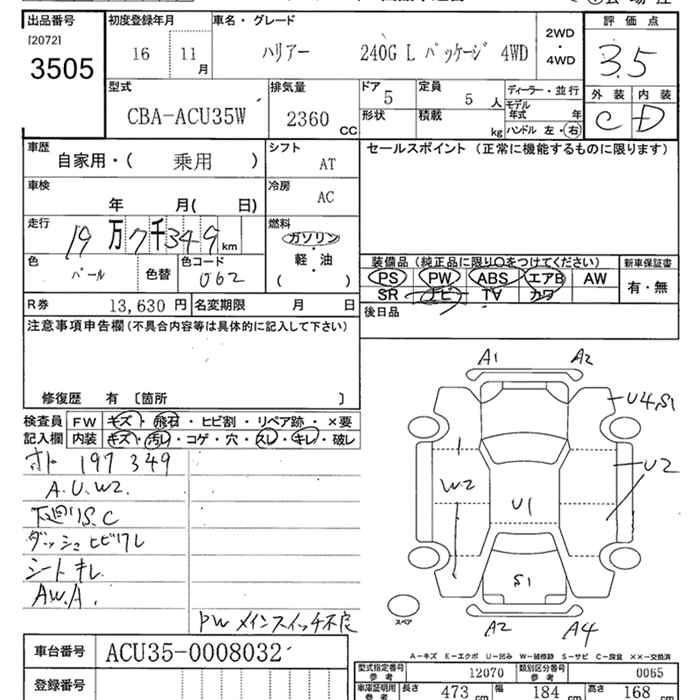 出品番号 初度登録年月 車名・グレード 2WD ・ 4WD 評価点
[2072]
3505 16 11月 ハリアー 240G L パッケージ 4WD 3.5
型式 排気量 ドア 5 定員 5人 ディーラー・並行 外装 内装
CBA-ACU35W 2360 CC 形状 積載 kg モデル年式 年 C D
ハンドル 左・右
車歴 自家用・( 乗用 ) シフト AT セールスポイント (正常に機能するものに限ります)
車検 年 月( 日) 冷房 AC
走行 19万7千349km 燃料 ガソリン 軽・油 ( )
色 パール 色替 色コード 062
装備品 (純正品に限り○をつけてください) 新車保証書
PS PW ABS エアB AW 有・無
SR ナビ TV カワ
R券 13,630円 名変期限 月 日 後日品
注意事項申告欄 (不具合内容等は具体的に記入して下さい)
修復歴 有 〔箇所 〕
検査員 FW キズ・飛石・ヒビ割・リペア跡・×要
記入欄 内装 キズ・汚レ・コゲ・穴・スレ・キレ・破レ
オト 197349
A.U.W2
下廻りS.C
ダッシュヒビワレ
シートキレ
A.W.A.
PW メインスイッチ不良
A1 A2
U4,S1
W2 U1 U2
S1
スペア A2 A4
車台番号 ACU35-0008032
A-キズ E-エクボ U-凹み W-補修跡 S-サビ C-腐食 XX-交換済
登録番号 型式指定番号 参考 12070 類別区分番号 参考 0065
車庫証明用 参考 長さ 473 cm 幅 184 cm 高さ 168 cm